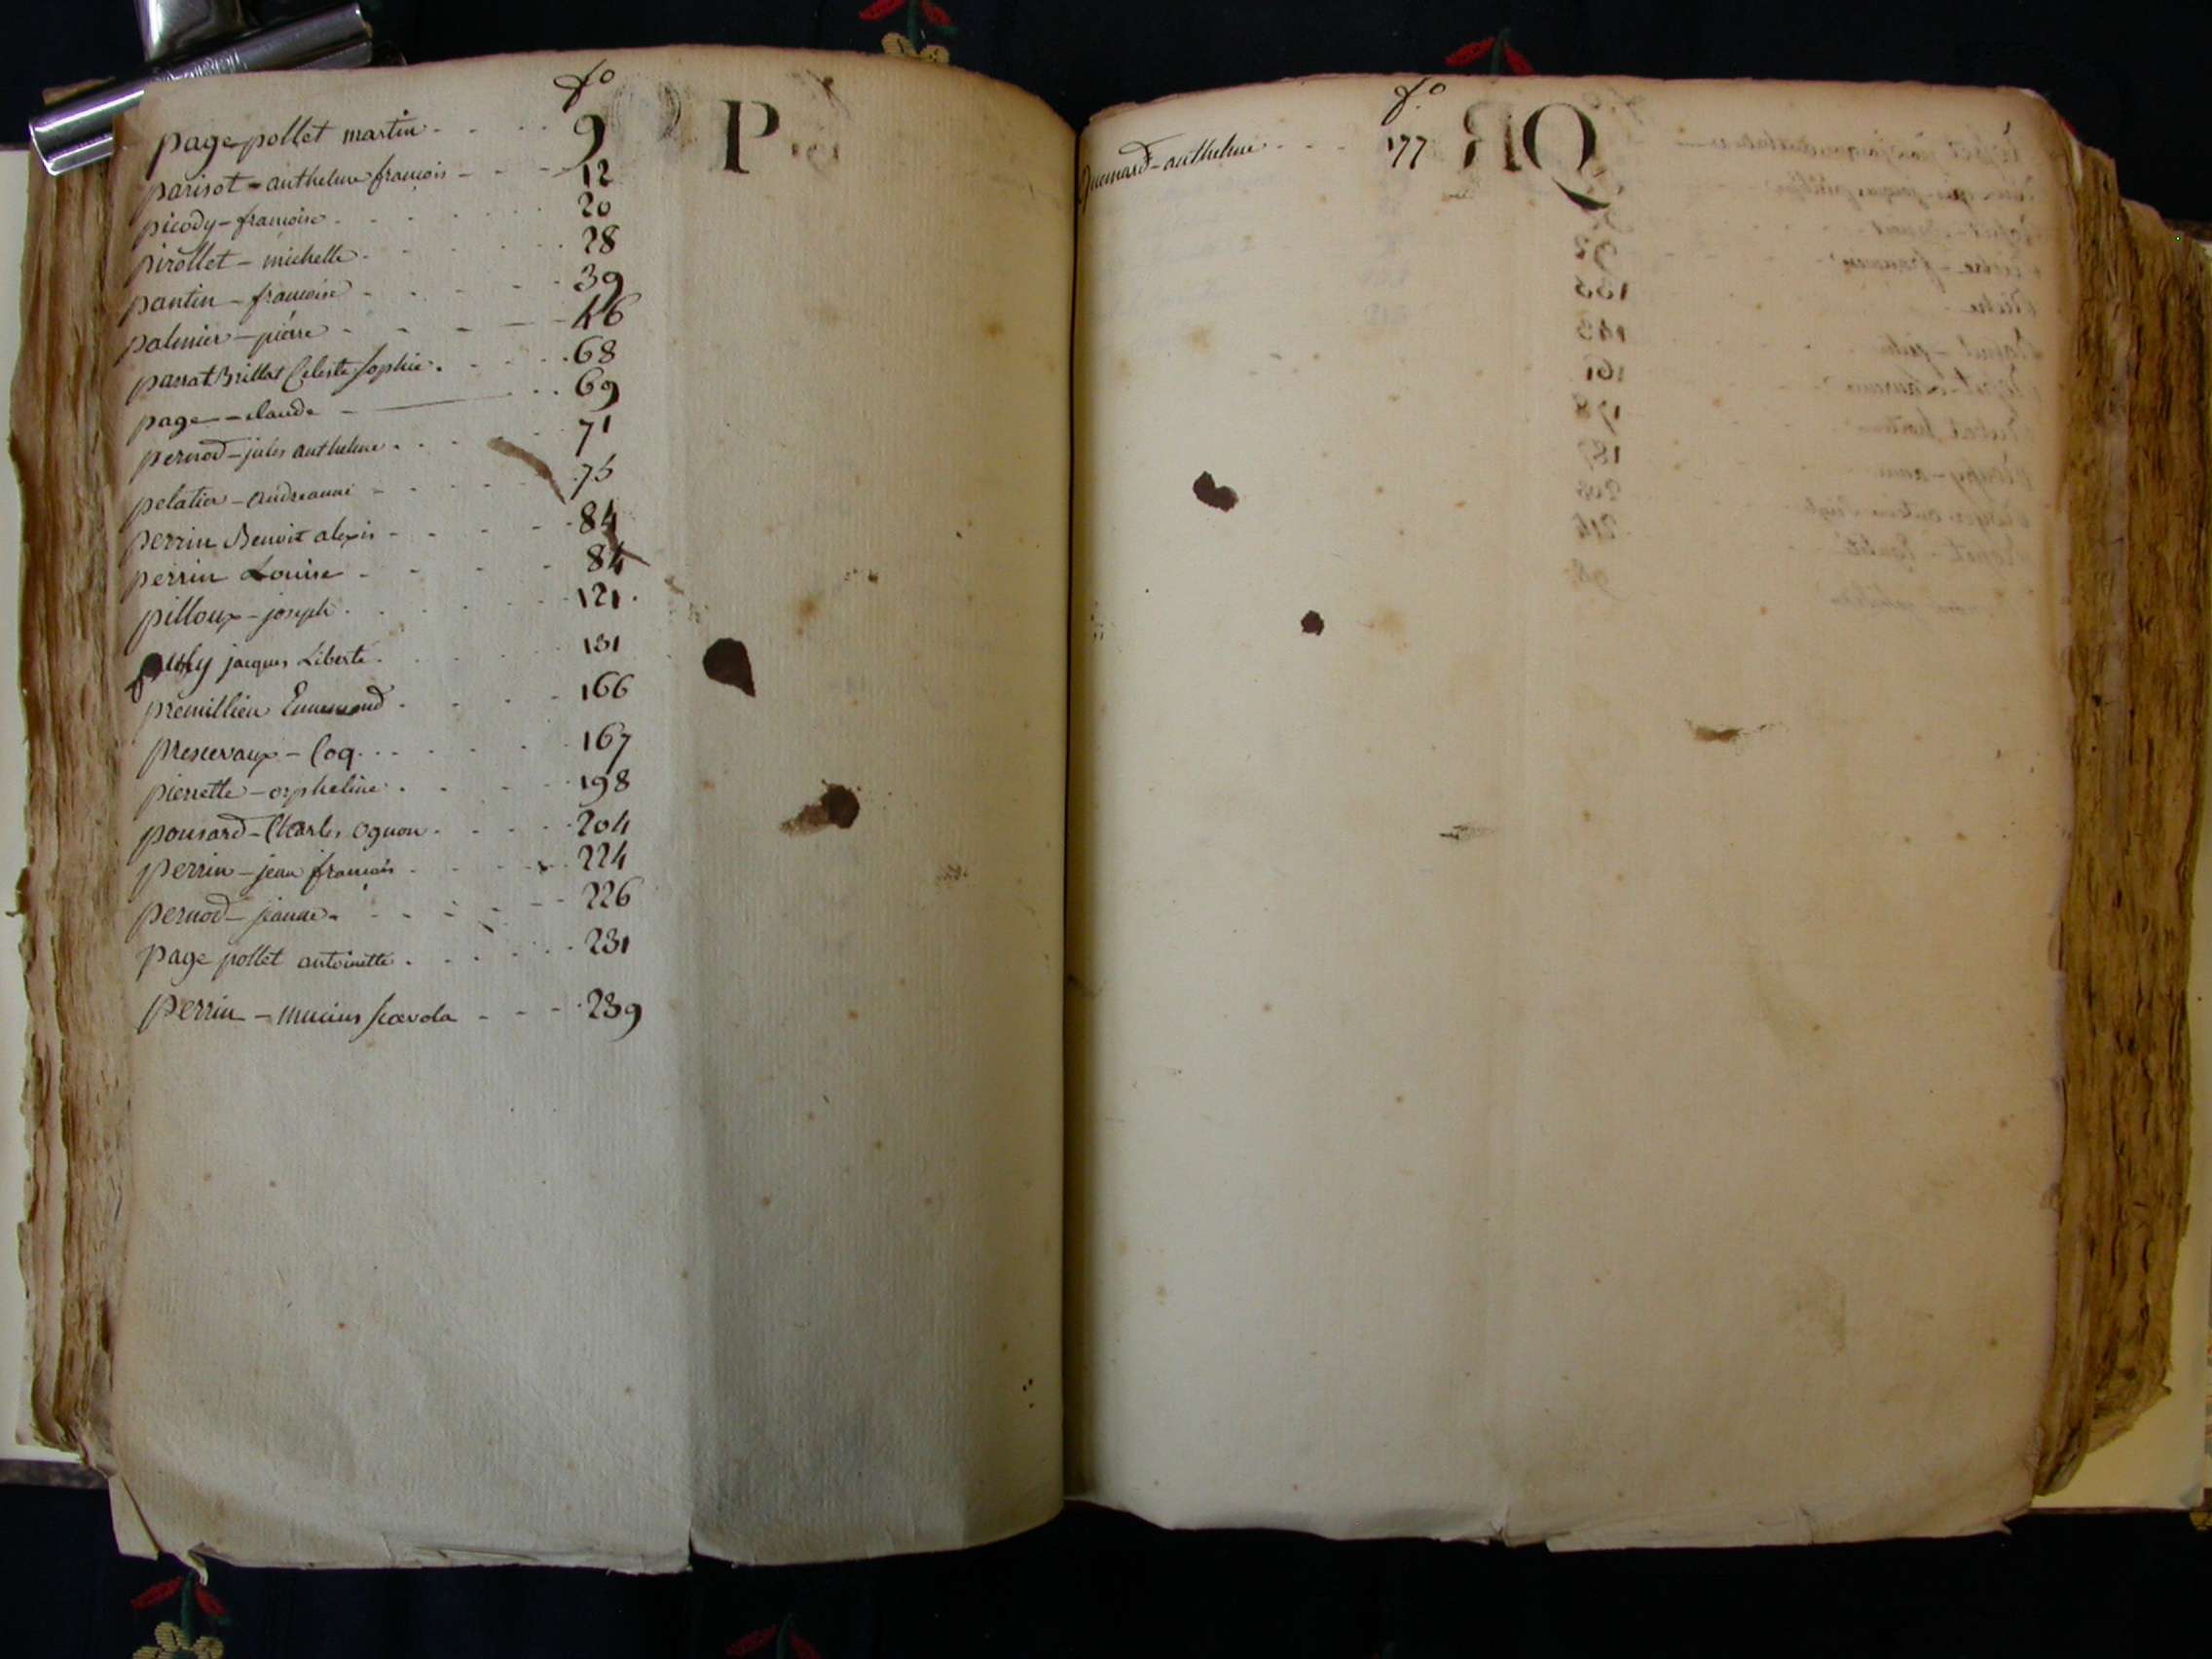 fo
P
page pollet martin 9
parisot - anthelme françois 12
picody - françoise 20
pirollet - michelle 28
pantin - françoise 39
palmier - pierre 46
parrat Brillat Celeste Sophie 68
page - claude 69
pernod - jules anthelme 71
pelatier - andreanne 75
perrin Benoit alexis 84
perrin Louise 84
pilloux - joseph 121
jacques Liberté 131
premillieu Ennemond 166
prescevaux - Coq 167
pierrette - orpheline 198
ponsard - Charles Ognon 204
perrin - jean françois 224
pernod - jeanne 226
page pollet antoinette 231
perrin - mucius scævola 239
fo
Q
Quemard - anthelme 177